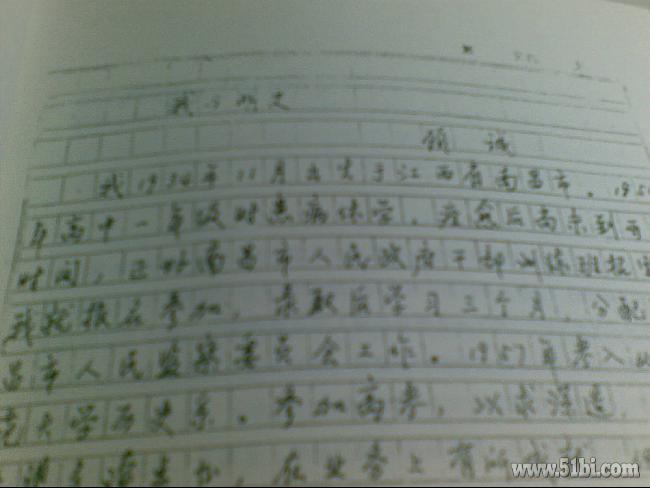 我与明史
顾诚
我1934年11月出生于江西省南昌市。195
年高中一年级时患病休学，痊愈后尚未到开
时间，正好南昌市人民政府干部训练班招生
我就报名参加，录取后学习三个月，分配
昌市人民监察委员会工作。1957年考入北
范大学历史系。参加高考，以求深造，
在业务上有所
www.51bi.com